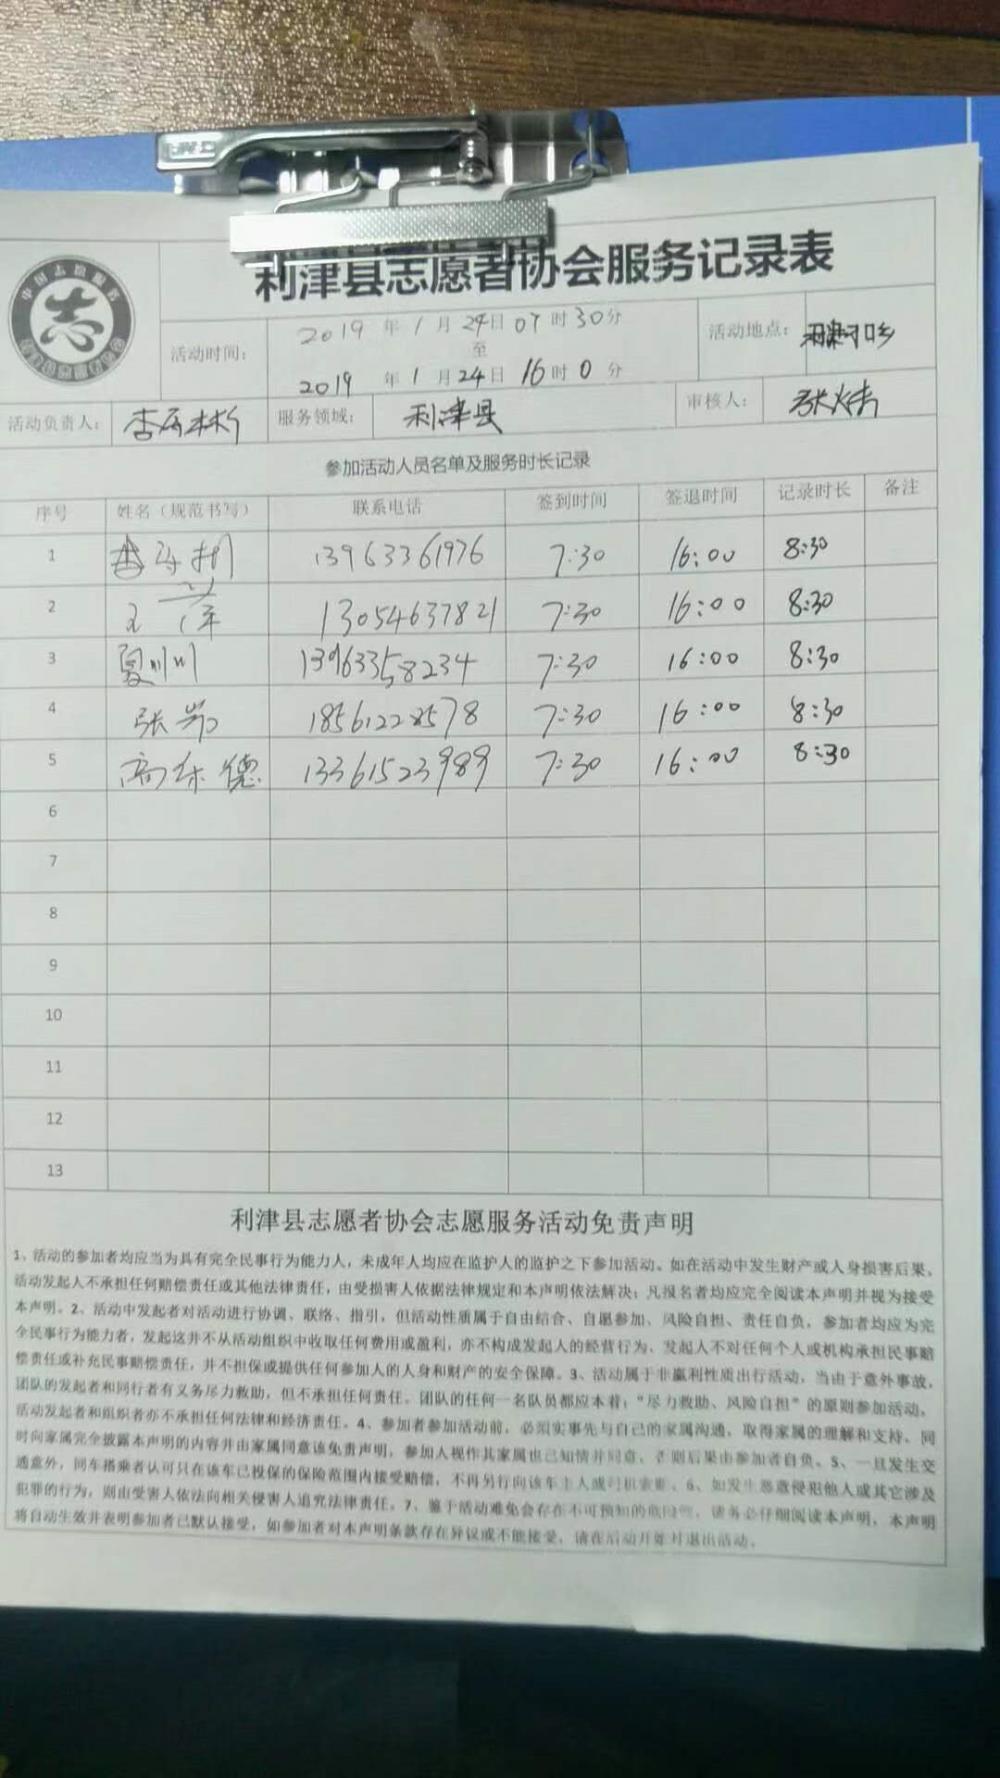 利津县志愿者协会服务记录表
活动时间： 2019 年 1 月 24 日 07 时 30 分 至 2019 年 1 月 24 日 16 时 0 分
活动地点：
活动负责人： 服务领域： 利津县 审核人：
参加活动人员名单及服务时长记录
序号 姓名（规范书写） 联系电话 签到时间 签退时间 记录时长 备注
1 13963361976 7:30 16:00 8:30
2 13054637821 7:30 16:00 8:30
3 13963358234 7:30 16:00 8:30
4 张 18561228578 7:30 16:00 8:30
5 高 德 13361523989 7:30 16:00 8:30
6
7
8
9
10
11
12
13
利津县志愿者协会志愿服务活动免责声明
1、活动的参加者均应当为具有完全民事行为能力人，未成年人均应在监护人的监护之下参加活动。如在活动中发生财产或人身损害后果，
活动发起人不承担任何赔偿责任或其他法律责任，由受损害人依据法律规定和本声明依法解决；凡报名者均应完全阅读本声明并视为接受
本声明。2、活动中发起者对活动进行协调、联络、指引，但活动性质属于自由结合、自愿参加、风险自担、责任自负，参加者均应为完
全民事行为能力者，发起这并不从活动组织中收取任何费用或盈利，亦不构成发起人的经营行为，发起人不对任何个人或机构承担民事赔
偿责任或补充民事赔偿责任，并不担保或提供任何参加人的人身和财产的安全保障。3、活动属于非赢利性质出行活动，当由于意外事故，
团队的发起者和同行者有义务尽力救助，但不承担任何责任。团队的任何一名队员都应本着：“尽力救助、风险自担”的原则参加活动，
活动发起者和组织者亦不承担任何法律和经济责任。4、参加者参加活动前，必须实事先与自己的家属沟通，取得家属的理解和支持、同
时向家属完全披露本声明的内容并由家属同意该免责声明，参加人视作其家属也已知情并同意，否则后果由参加者自负。5、一旦发生交
通意外，同车搭乘者认可只在该车已投保的保险范围内接受赔偿，不再另行向该车主人或司机索赔。6、如发生恶意侵犯他人或其它涉及
犯罪的行为，则由受害人依法向相关侵害人追究法律责任。7、鉴于活动难免会存在不可预知的危险性，请务必仔细阅读本声明，本声明
将自动生效并表明参加者已默认接受，如参加者对本声明条款存在异议或不能接受，请在活动开始时退出活动。